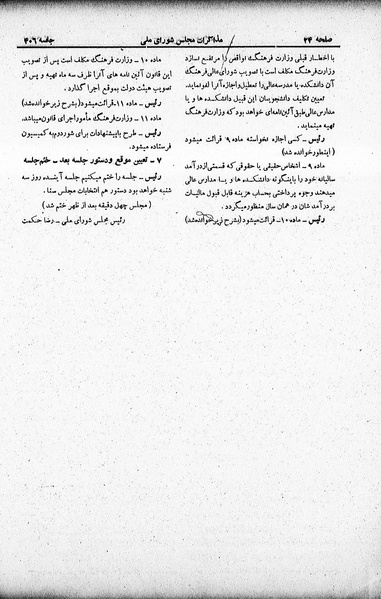 صفحه ۲۴
مذاکرات مجلس شورای ملی
جلسه ۲۰۶
با اخطار قبلی وزارت فرهنگ نواقص را مرتفع نسازد
وزارت فرهنگ مکلف است با تصویب شورای عالی فرهنگ
آن دانشکده یا مدرسه عالی را تعطیل و اجازه آنرا لغو نماید.
تعیین تکلیف دانشجویان این قبیل دانشکده ها و یا
مدارس عالی طبق آئین نامه‌ای خواهد بود که وزارت فرهنگ
تهیه مینماید.
رئیس ـ کسی اجازه نخواسته ماده ۹ قرائت میشود
(اینطور خوانده شد)
ماده ۹ ـ اشخاص حقیقی یا حقوقی که قسمتی از درآمد
سالیانه خود را باینگونه دانشکده ها و یا مدارس عالی
میدهند وجوه پرداختی بحساب هزینه قابل قبول مالیات
بر درآمد شان در همان سال منظور میگردد.
رئیس ـ ماده ۱۰ـ قرائت میشود (بشرح زیر خوانده شد)
ماده ۱۰ ـ وزارت فرهنگ مکلف است پس از تصویب
این قانون آئین نامه های آنرا ظرف سه ماه تهیه و پس از
تصویب هیئت دولت بموقع اجرا گذارد.
رئیس ـ ماده ۱۱ـ قرائت میشود (بشرح زیر خوانده شد)
ماده ۱۱ ـ وزارت فرهنگ مأمور اجرای قانون میباشد.
رئیس ـ طرح با پیشنهادات برای شور دوم به کمیسیون
فرستاده میشود.
۷ ـ تعیین موقع و دستور جلسه بعد ـ ختم جلسه
رئیس ـ جلسه را ختم میکنیم جلسه آینده روز سه
شنبه خواهد بود دستور هم انتخابات مجلس سنا.
(مجلس چهل دقیقه بعد از ظهر ختم شد)
رئیس مجلس شورای ملی ـ رضا حکمت